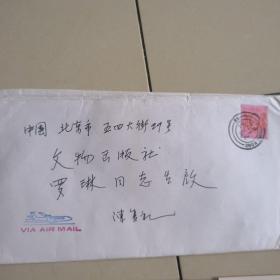 中国 北京市 五四大街29号
文物出版社
罗琳同志台启
VIA AIR MAIL